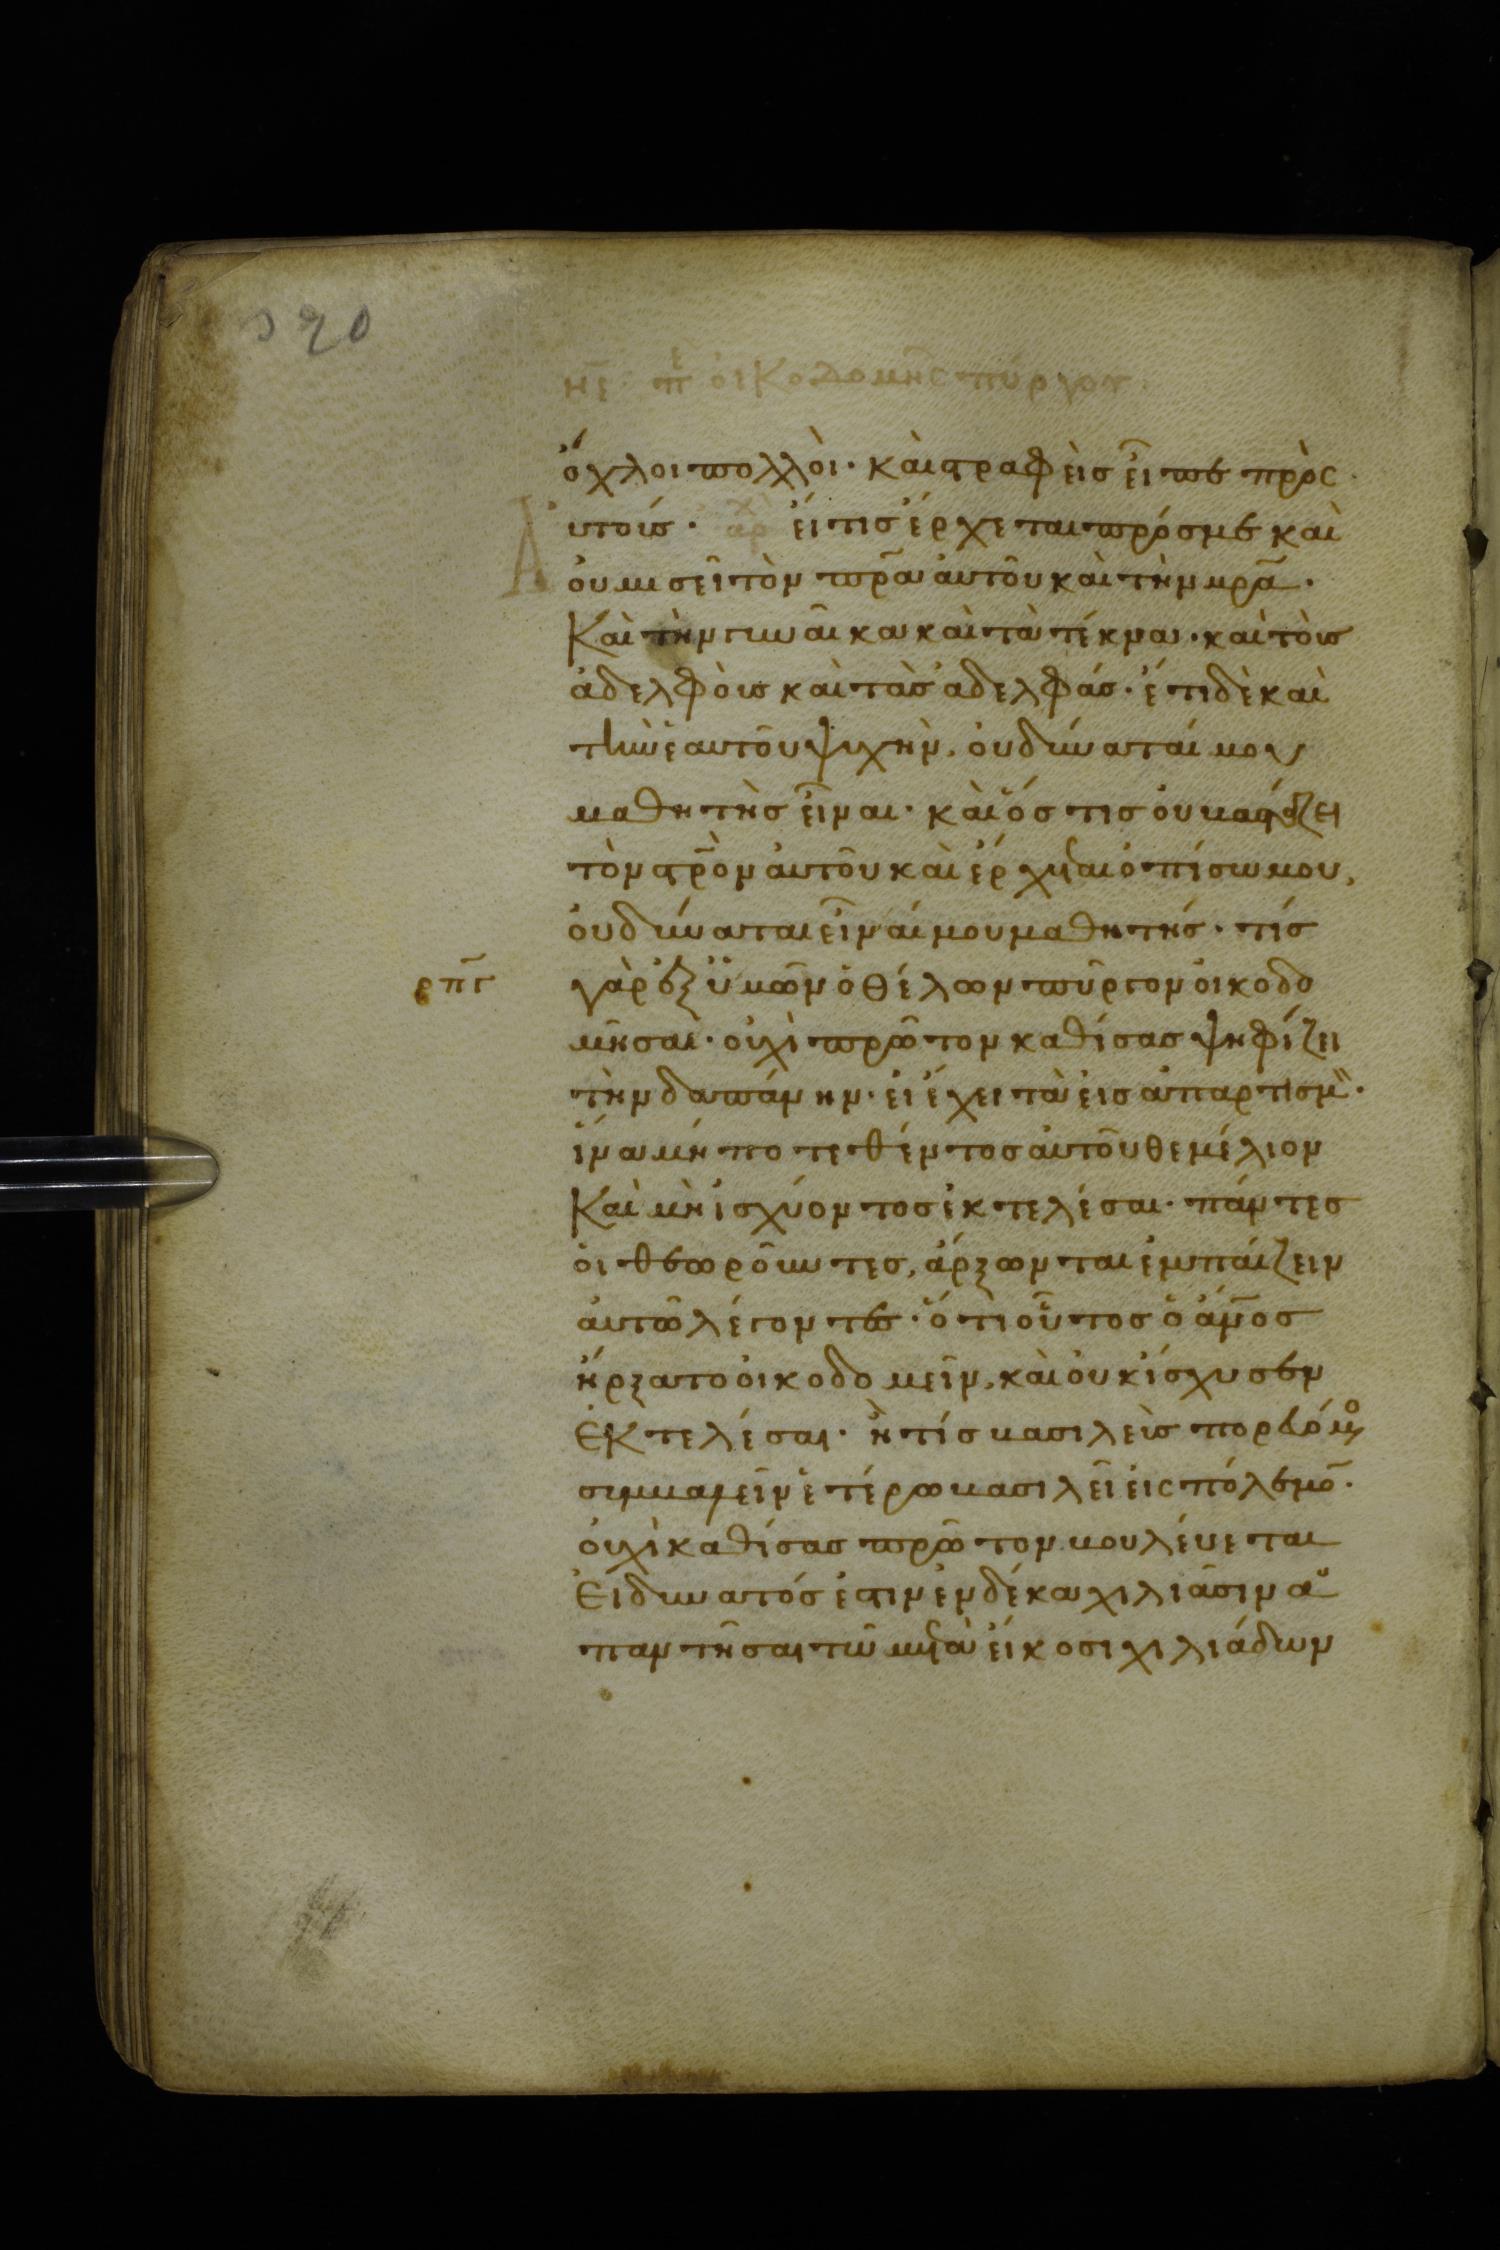 νε πε οικοδομης πύργου
ὄχλοι πολλοὶ· καὶ στραφεὶς εἶπε πρὸς
Αὐτούς· ἀρχ εἴ τις ἔρχεται πρός με καὶ
οὐ μισεῖ τὸν πρα αὐτοῦ καὶ τὴν μρα·
Καὶ τὴν γυναῖκα καὶ τὰ τέκνα· καὶ τοὺς
ἀδελφοὺς καὶ τὰς ἀδελφάς· ἔτι δὲ καὶ
τὴν ἑαυτοῦ ψυχὴν, οὐ δύναταί μου
μαθητὴς εἶναι· καὶ ὅστις οὐ βαστάζει
τὸν στρον αὐτοῦ καὶ ἔρχεται ὀπίσω μου,
οὐ δύναται εἶναί μου μαθητής· τίς
ρπγ
γὰρ ἐξ ὑμῶν ὁ θέλων πύργον οἰκοδο
μῆσαι· οὐχὶ πρῶτον καθίσας ψηφίζει
τὴν δαπάνην· εἰ ἔχει τὰ εἰς ἀπαρτισμ·
ἵνα μήποτε θέντος αὐτοῦ θεμέλιον
Καὶ μὴ ἰσχύοντος ἐκτελέσαι· πάντες
οἱ θεωροῦντες, ἄρξωνται ἐμπαίζειν
αὐτῶ λέγοντες· ὅτι οὗτος ὁ ἄνος
ἤρξατο οἰκοδομεῖν, καὶ οὐκ ἴσχυσεν
ἐκτελέσαι· ἢ τίς βασιλεὺς πορευόμο
συμβαλεῖν ἑτέρω βασιλεῖ εἰς πόλεμο·
οὐχὶ καθίσας πρῶτον βουλεύεται
Εἰ δυνατός ἐστιν ἐν δέκα χιλιάσιν ἀ
παντῆσαι τῶ μετὰ εἴκοσι χιλιάδων